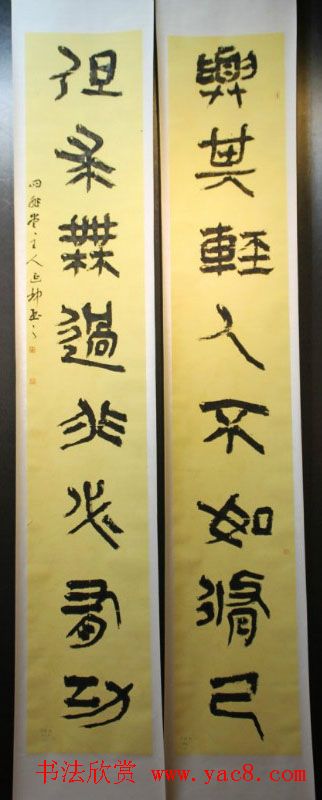 與其輕人不如脩己
但求無過非必有功
书法欣赏 www.yac8.com